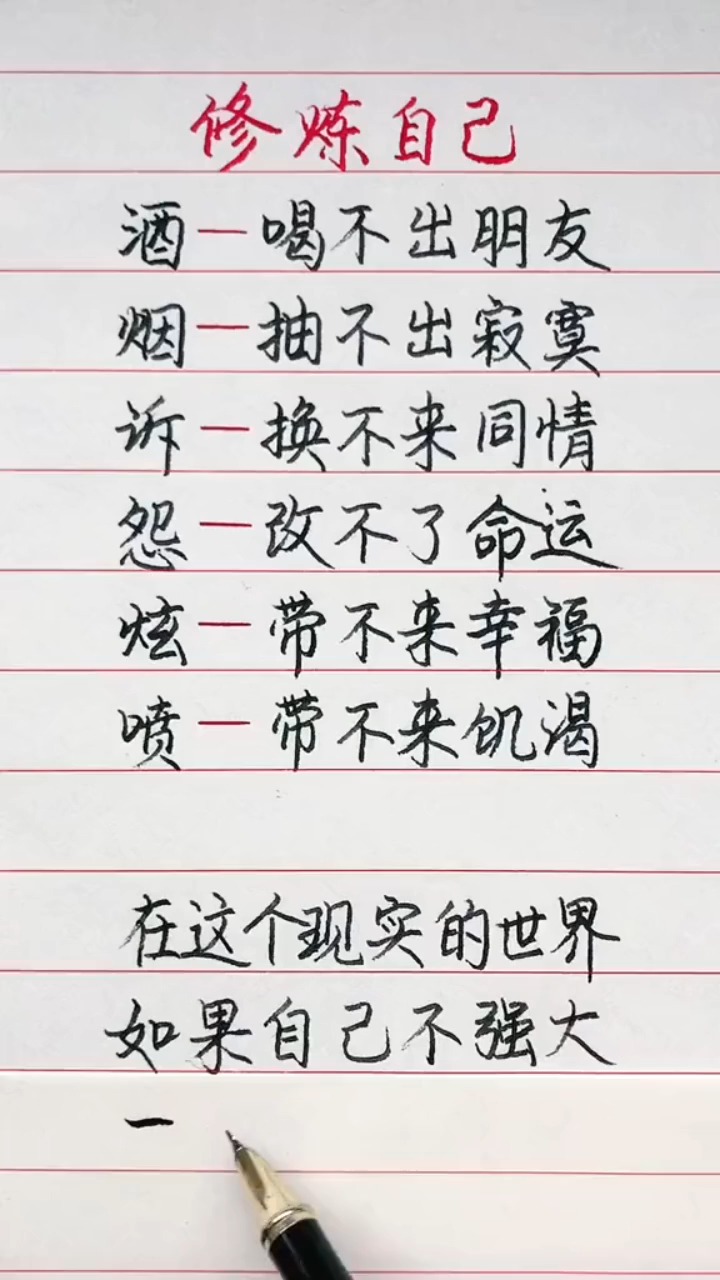 修炼自己
酒一喝不出朋友
烟一抽不出寂寞
诉一换不来同情
怨一改不了命运
炫一带不来幸福
喷一带不来饥渴
在这个现实的世界
如果自己不强大
一